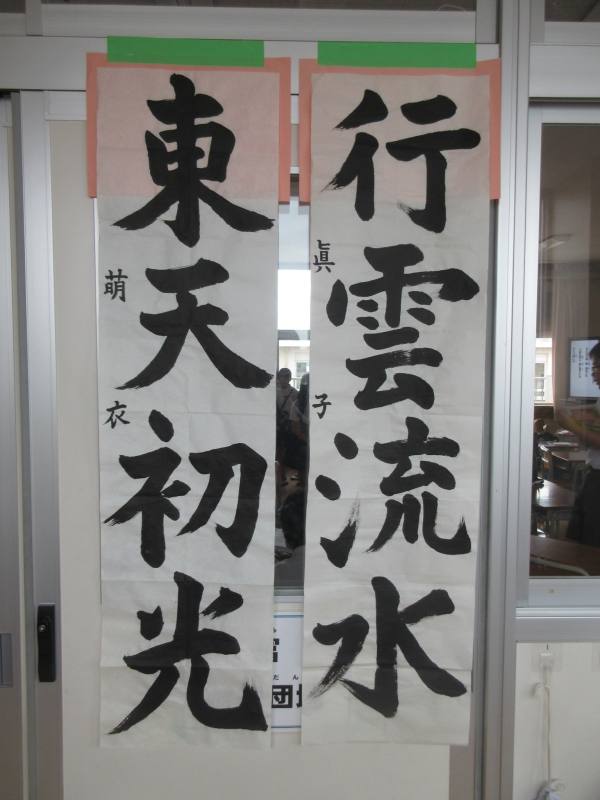 行雲流水
眞子
東天初光
萌衣
団